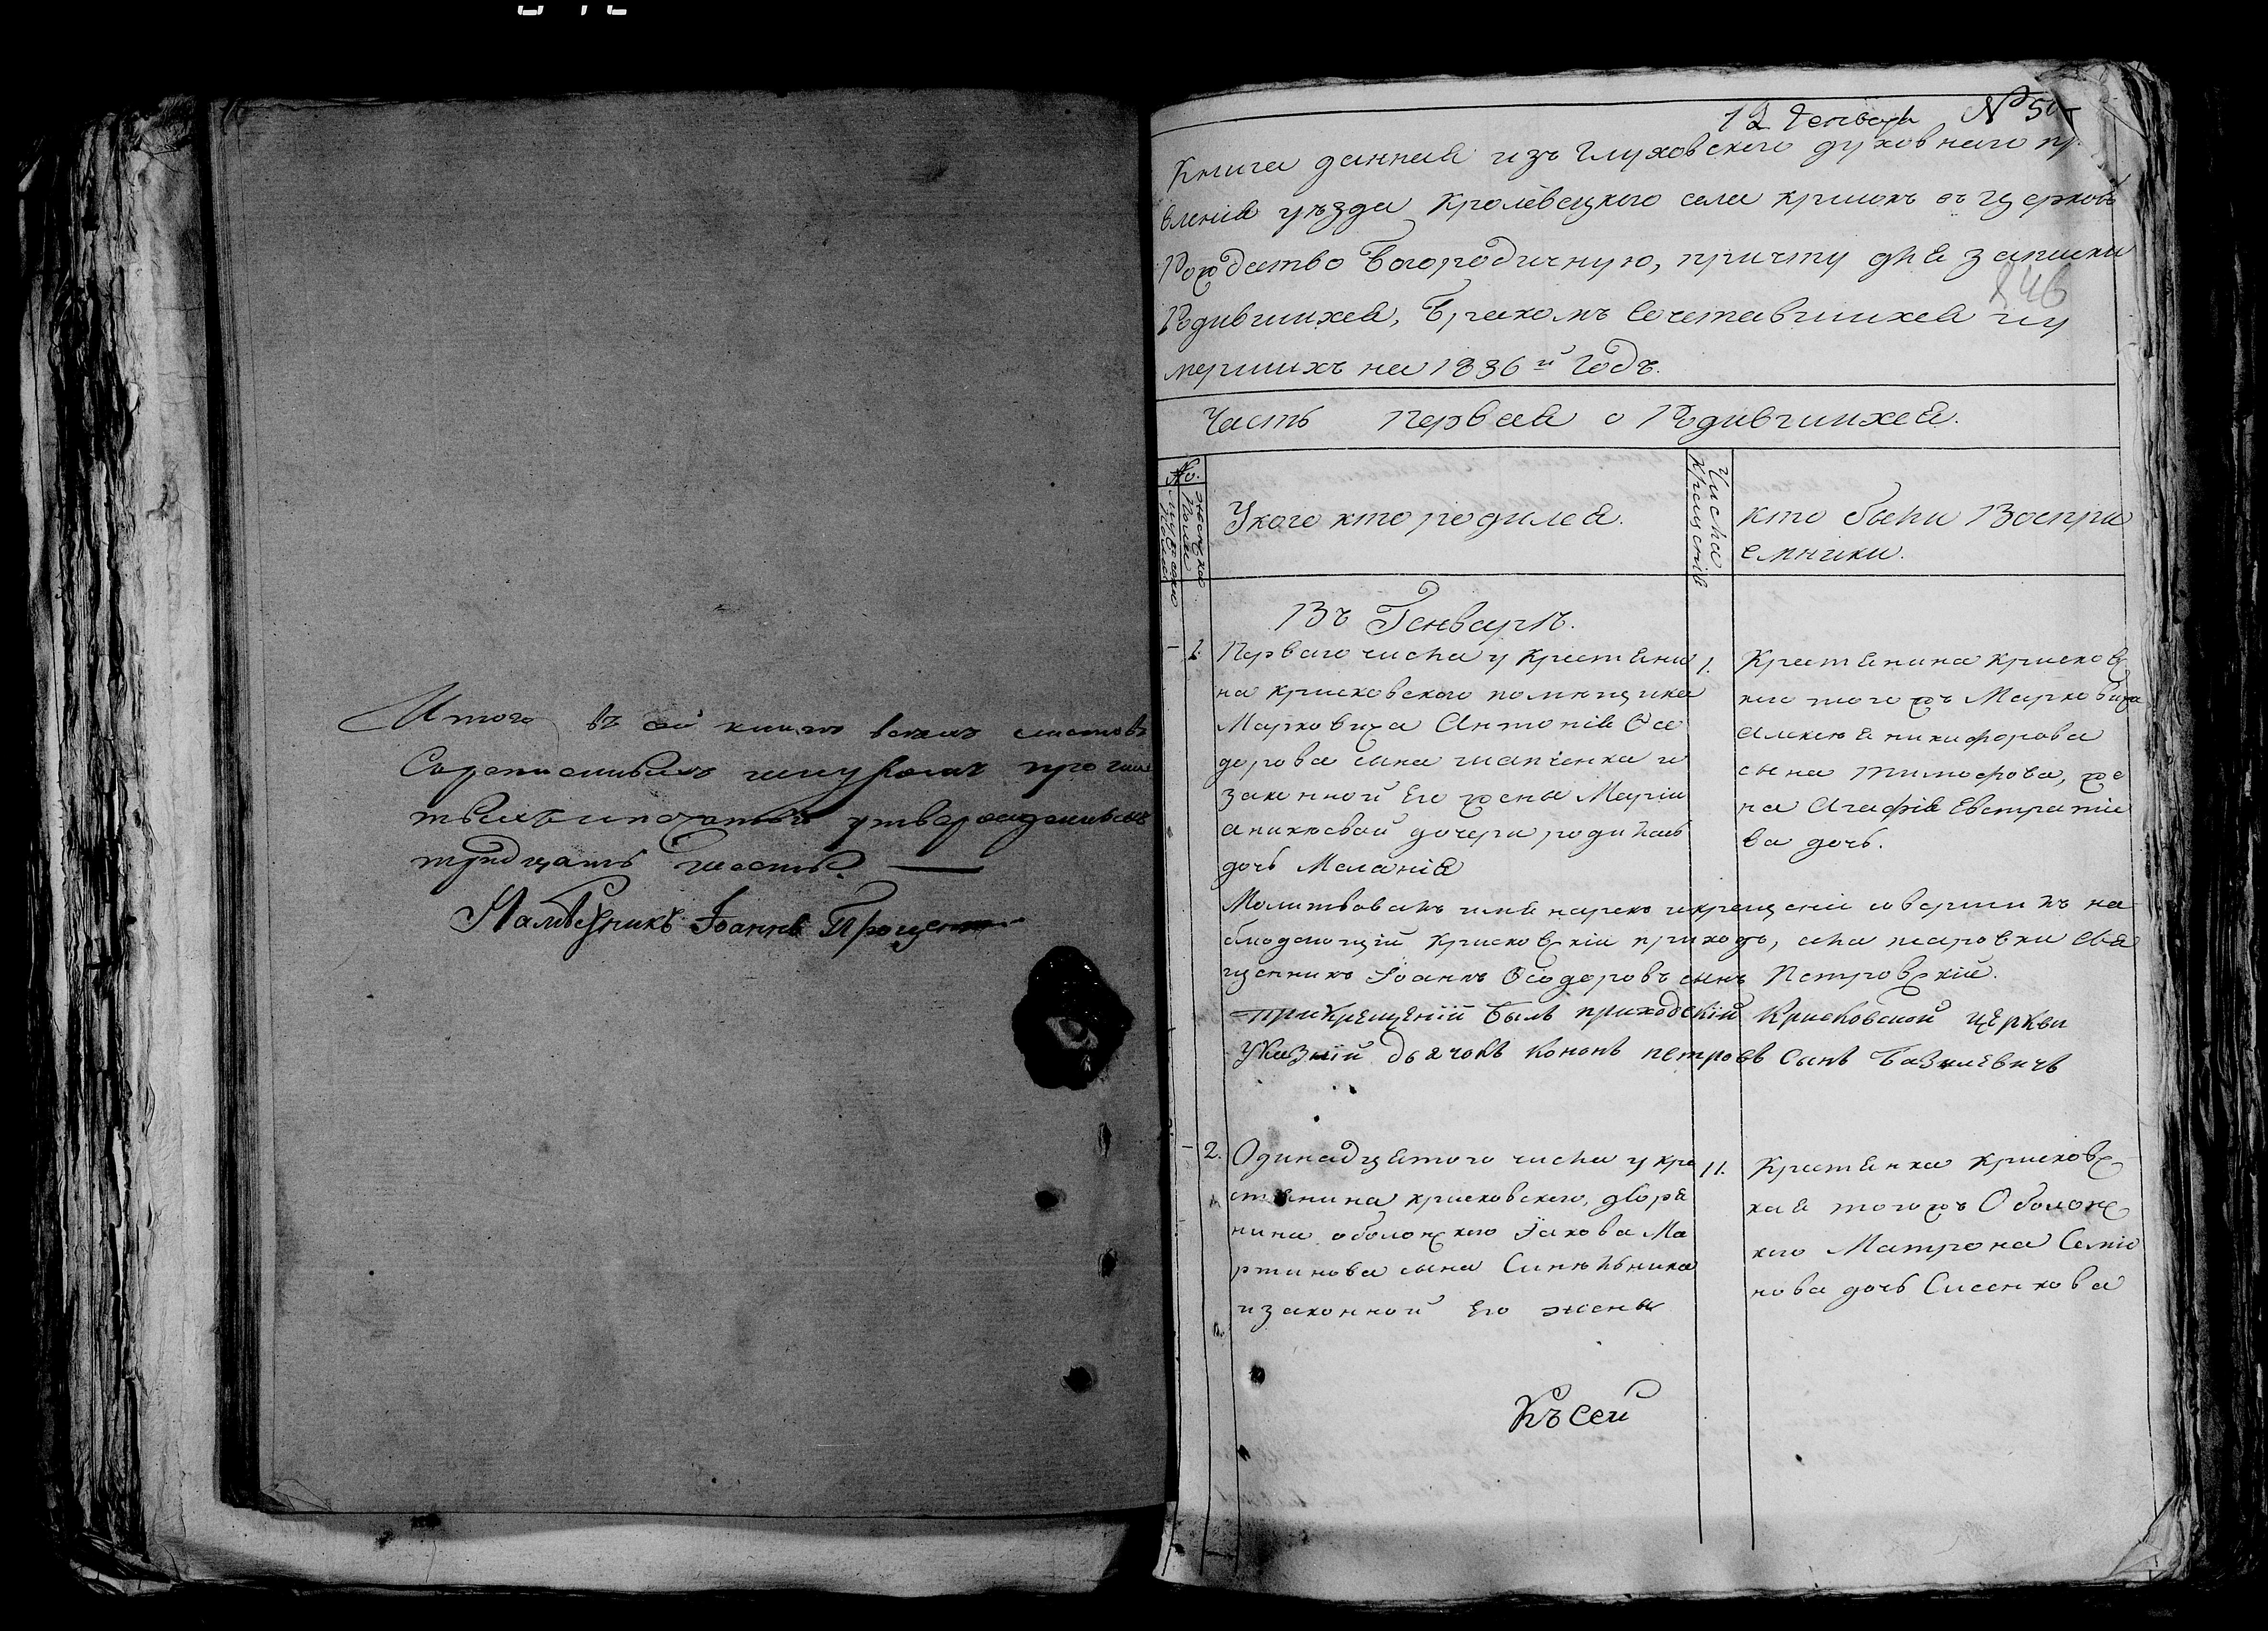 Итого въ сей книге всехъ листовъ
тридцать шесть.
Намѣсникъ Іоаннъ Прощенко
12 Генваря № 50
Книга данная изъ Глуховского духовнаго пр
вленія уѣзда Кролевецкого села крисокъ въ церковь
Рождество Богородичную, причту для записки
846
Родившихся, Бракомъ Сочетавшихся и у
мершихъ на 1836й Годъ.
Часть Первая о Родившихся.
No.
мужеско Пола
женска Пола
У кого кто родился.
Числа крещенія
кто были Воспри
емники.
Въ Генварѣ.
1. Перваго числа у Крестьяни
на крисковского помѣщика
Марковича Антонія Ѳео
дорова сына шапіенка и
законной Его жены Маріи
аникіевой дочери родилась
дочь Меланія
1. Крестьянина крисковс
кого тогожъ Марковича
Алексея никифорова
сына тимофеева, же
на Агафія Евстратіе
ва дочь.
Молитвовалъ имя нареклъ и крещеніе совершилъ на
блюдающій Крисковскій приходъ, села шаровки Свя
щенникъ Іоаннъ Ѳеодоровъ сынъ Петровскій.
при крещеніи былъ приходскій Крисковской церкви
указній дьячокъ Кононъ петровъ Сынъ Базилевичъ
2. Одинадцятого числа у кре
стьянина крисковского, дворя
нина оболонского Іакова Ма
ртинова сына Синельника
и законной Его жены
11. Крестьянка крисковс
кая тогожъ Оболонс
кого Матрона Семіо
нова дочь Сисенкова
Къ Сей